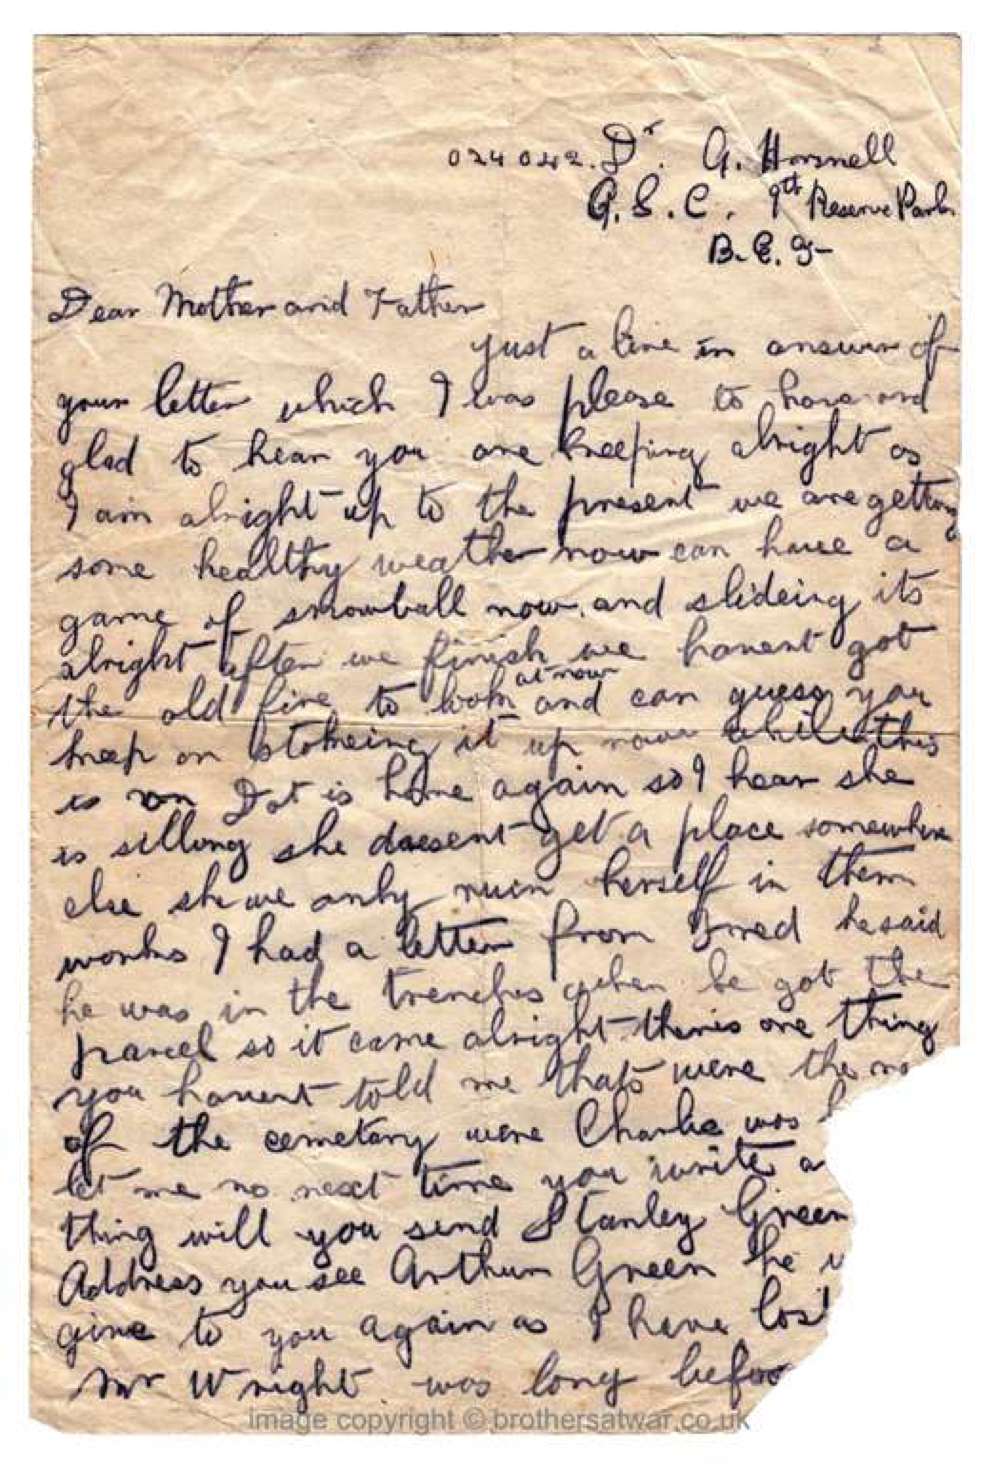 024042. Dr. G. Horsnell
A.S.C. 9th Reserve Park
B.E.F.
Dear Mother and Father
just a line in answer of
your letter which I was please to have and
glad to hear you are keeping alright as
I am alright up to the present we are getting
some healthy weather now can have a
game of snowball now. and slideing its
alright after we finish we havent got
the old fire to look at now and can guess you
keep on stokeing it up now while this
is on Dot is home again so I hear she
is she doesent get a place somewhere
else she we only ruin herself in them
works I had a letter from Fred he said
he was in the trenches when he got the
parcel so it came alright theris one thing
you havent told me thats were the
of the cemetary were Charlie was
let me no next time you write a
thing will you send Stanley Green
Address you see Arthur Green he
give to you again as I have lost
Mr Wright was long befoo
image copyright © brothersatwar.co.uk